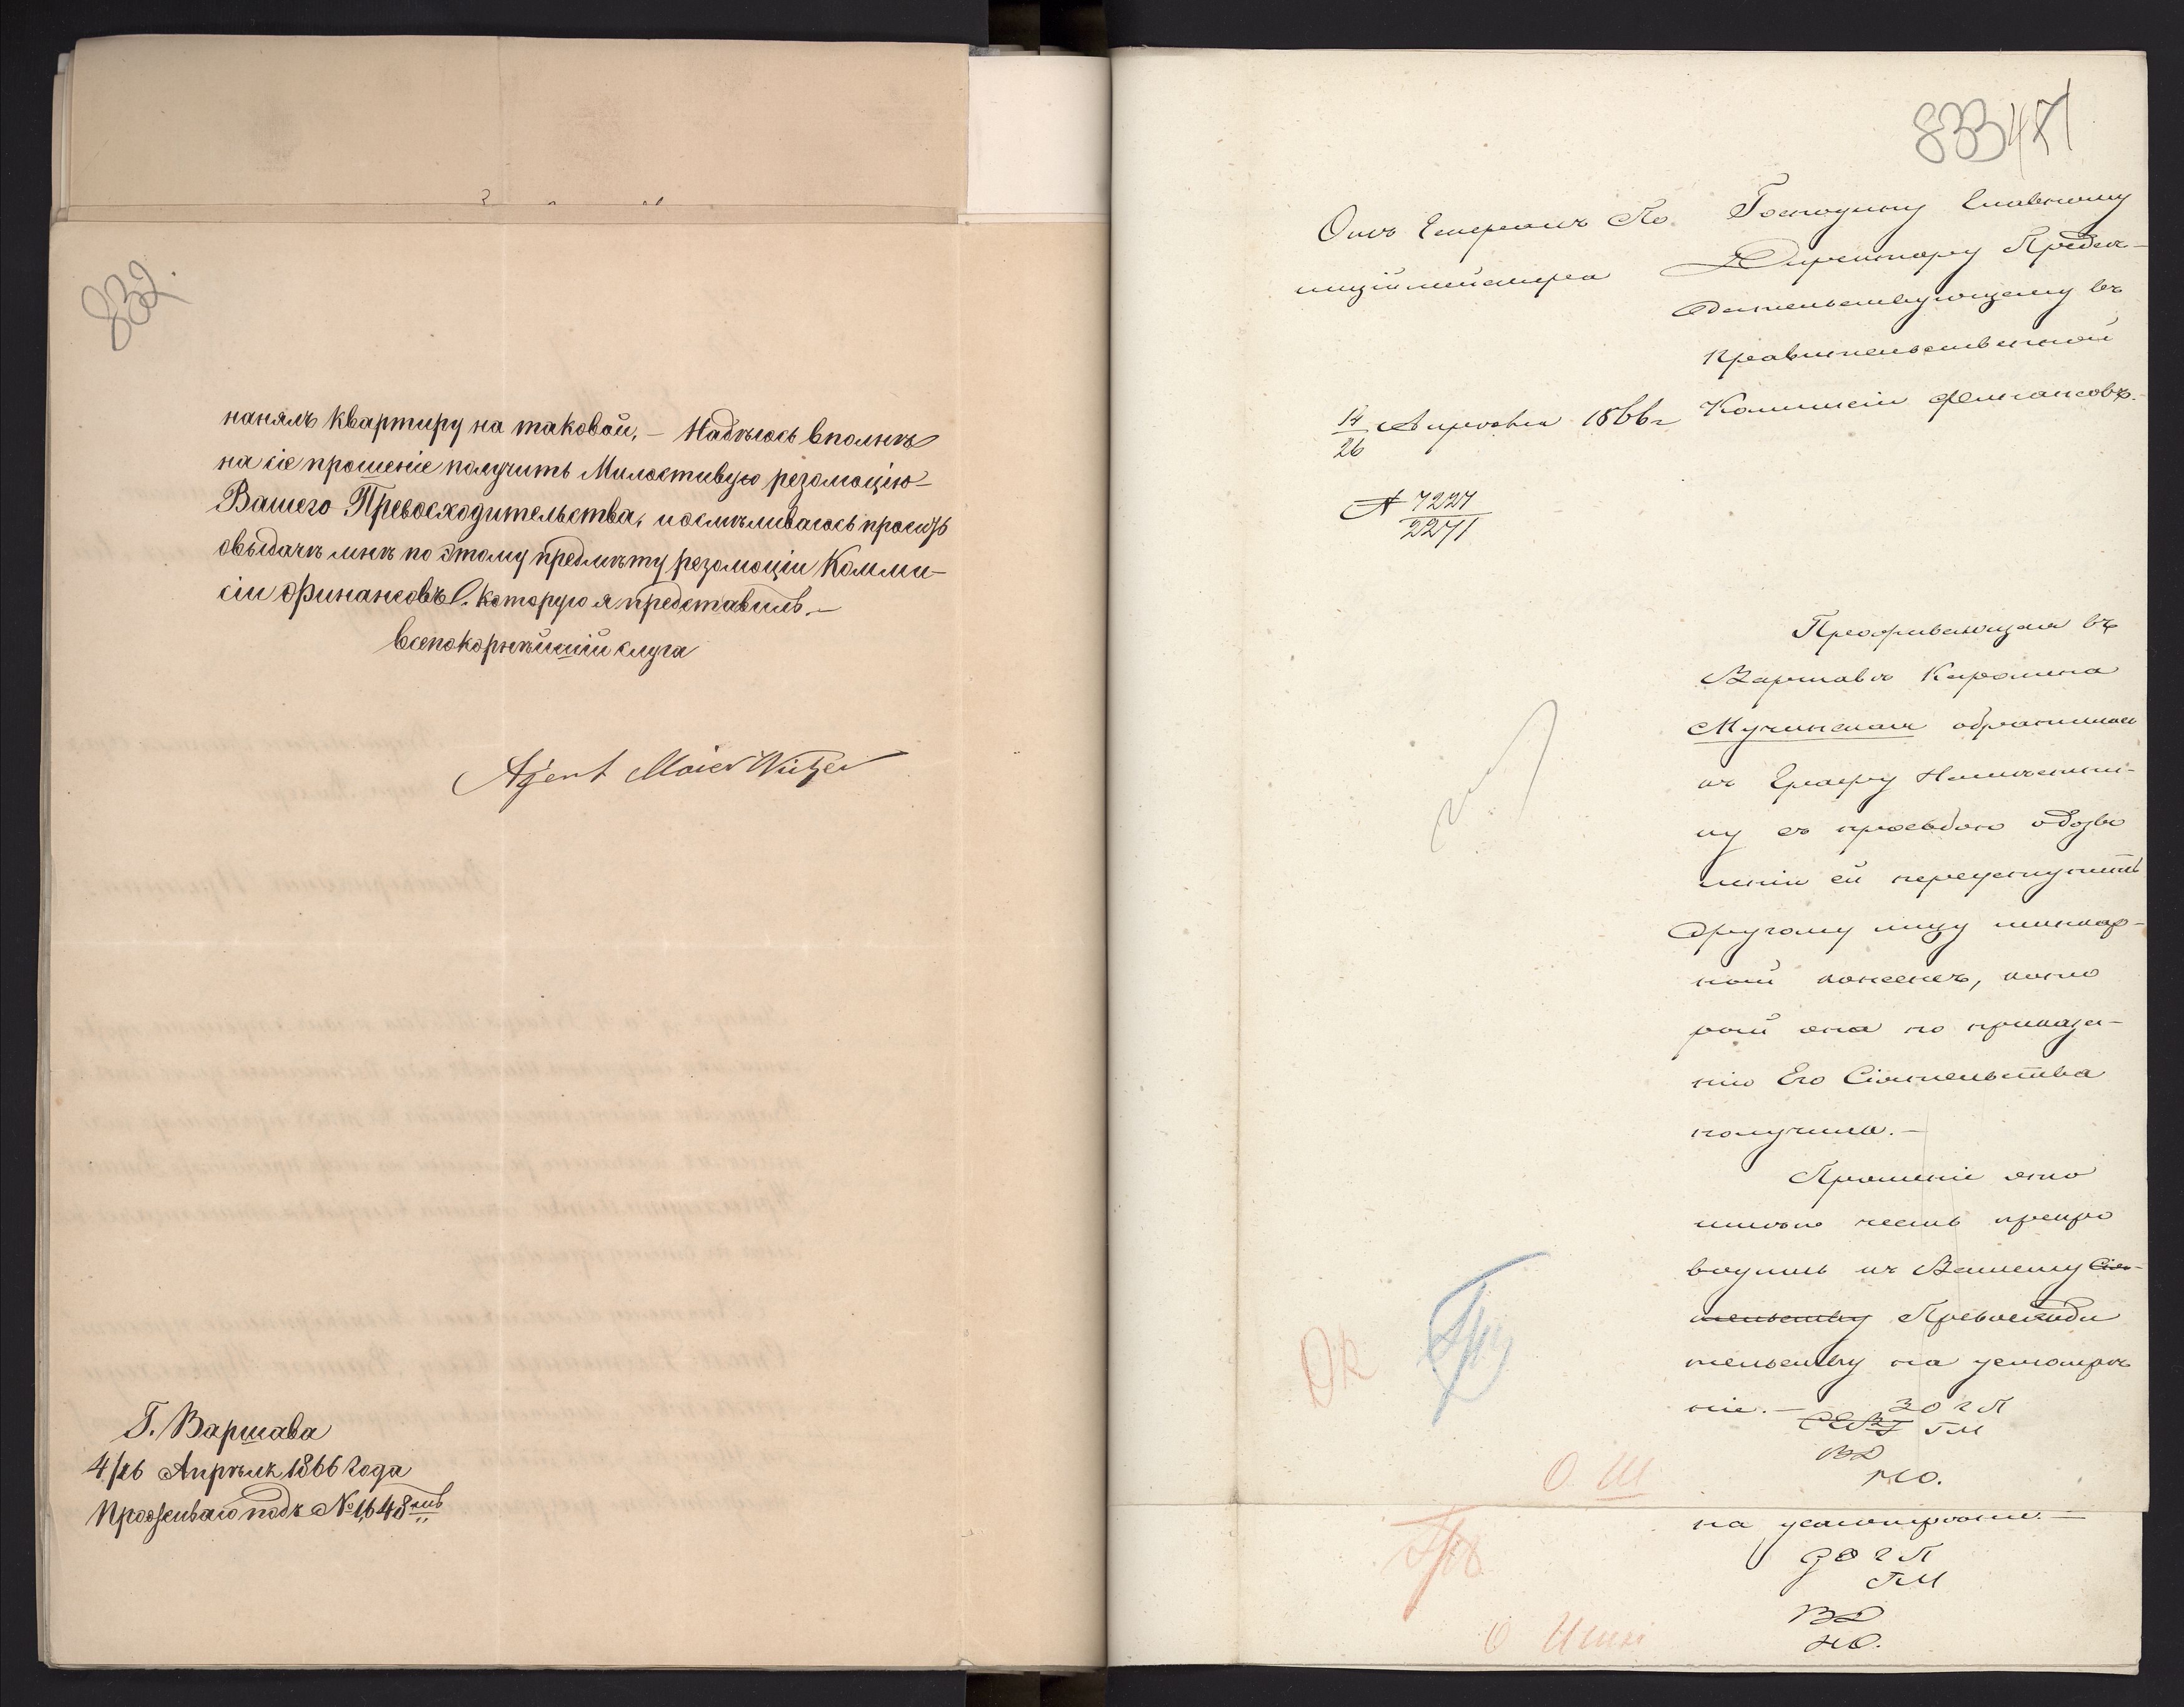 832.
нанялъ квартиру на таковой, — Надѣюсь вполнѣ
на сіе прошеніе получить Милостивую резолюцію
Вашего Превосходительства, и осмѣливаюсь просить
о выдачѣ мнѣ по этому предмѣту резолюціи Комми-
сіи Финансовъ которую я представилъ. —
всепокорнѣйшій слуга
Agent Maier
Г. Варшава
4/16 Апрѣля 1866 Года
Проживаю подъ № 1648
833 471
Отъ Генералъ По
лицiймейстера
14/26 Апрѣля 1866 г
№ 7227/2271
Господину Главному
Директору Предсѣ-
дательствующему въ
Правительственной
Коммисіи Финансовъ.
Проживающая въ
Варшавѣ Каролина
Мучинская обратилась
къ Графу Намѣстни-
ку съ просьбою о дозво
леніи ей переуступить
другому лицу шинкар-
ной консенсъ, кото
рой она по приказа-
нію Его Сіятельства
получила. —
Прошеніе это
имѣю честь препро
водить къ Вашему Сія-
тельству Превосходи
тельству на усмотрѣ
ніе. —
ГМ
ВД
НО.
ОК
О. Ш
на усмотрѣніе. —
ГМ
ВД
НО.